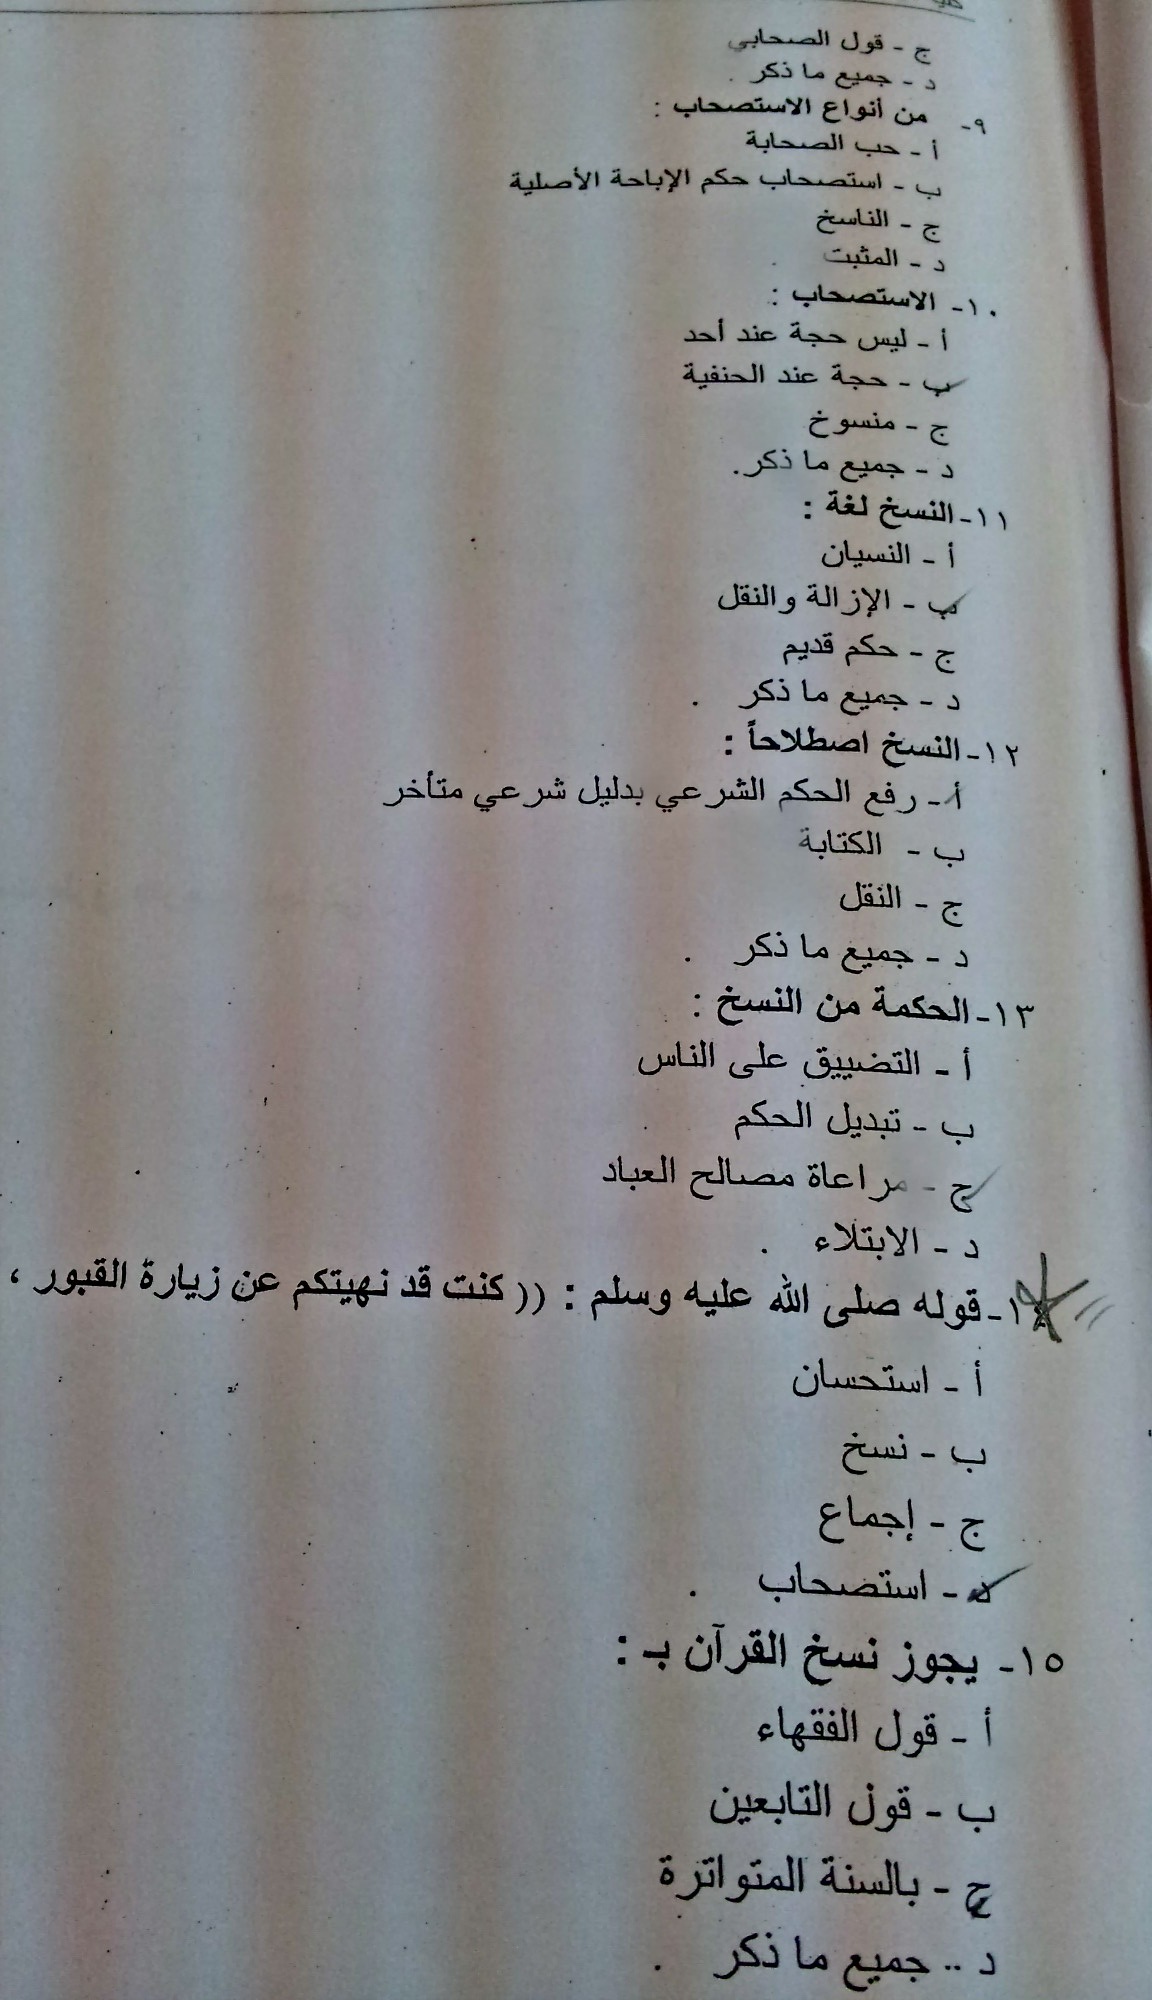 ج - قول الصحابي
د - جميع ما ذكر .
٩- من أنواع الاستصحاب :
أ - حب الصحابة
ب - استصحاب حكم الإباحة الأصلية
ج - الناسخ
د - المثبت .
١٠- الاستصحاب :
أ - ليس حجة عند أحد
ب - حجة عند الحنفية
ج - منسوخ
د - جميع ما ذكر.
١١- النسخ لغة :
أ - النسيان
ب - الإزالة والنقل
ج - حكم قديم
د - جميع ما ذكر .
١٢- النسخ اصطلاحاً :
أ - رفع الحكم الشرعي بدليل شرعي متأخر
ب - الكتابة
ج - النقل
د - جميع ما ذكر .
١٣- الحكمة من النسخ :
أ - التضييق على الناس
ب - تبديل الحكم
ج - مراعاة مصالح العباد
د - الابتلاء .
١٤- قوله صلى الله عليه وسلم : (( كنت قد نهيتكم عن زيارة القبور ،
أ - استحسان
ب - نسخ
ج - إجماع
د - استصحاب .
١٥- يجوز نسخ القرآن بـ :
أ - قول الفقهاء
ب - قول التابعين
ج - بالسنة المتواترة
د .. جميع ما ذكر .